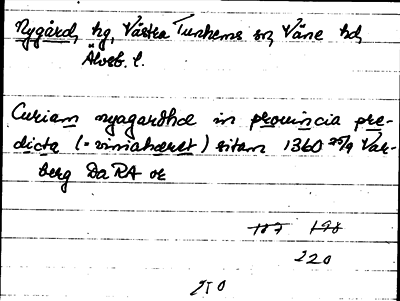 Nygård, hg, Västra Tunhems sn, Väne hd,
Älvsb. l.
Curiam nyagardhæ in prouincia pre-
dicta (: væniahæret) sitam 1360 25/9 Var-
berg Da RA or
187 198
220
210